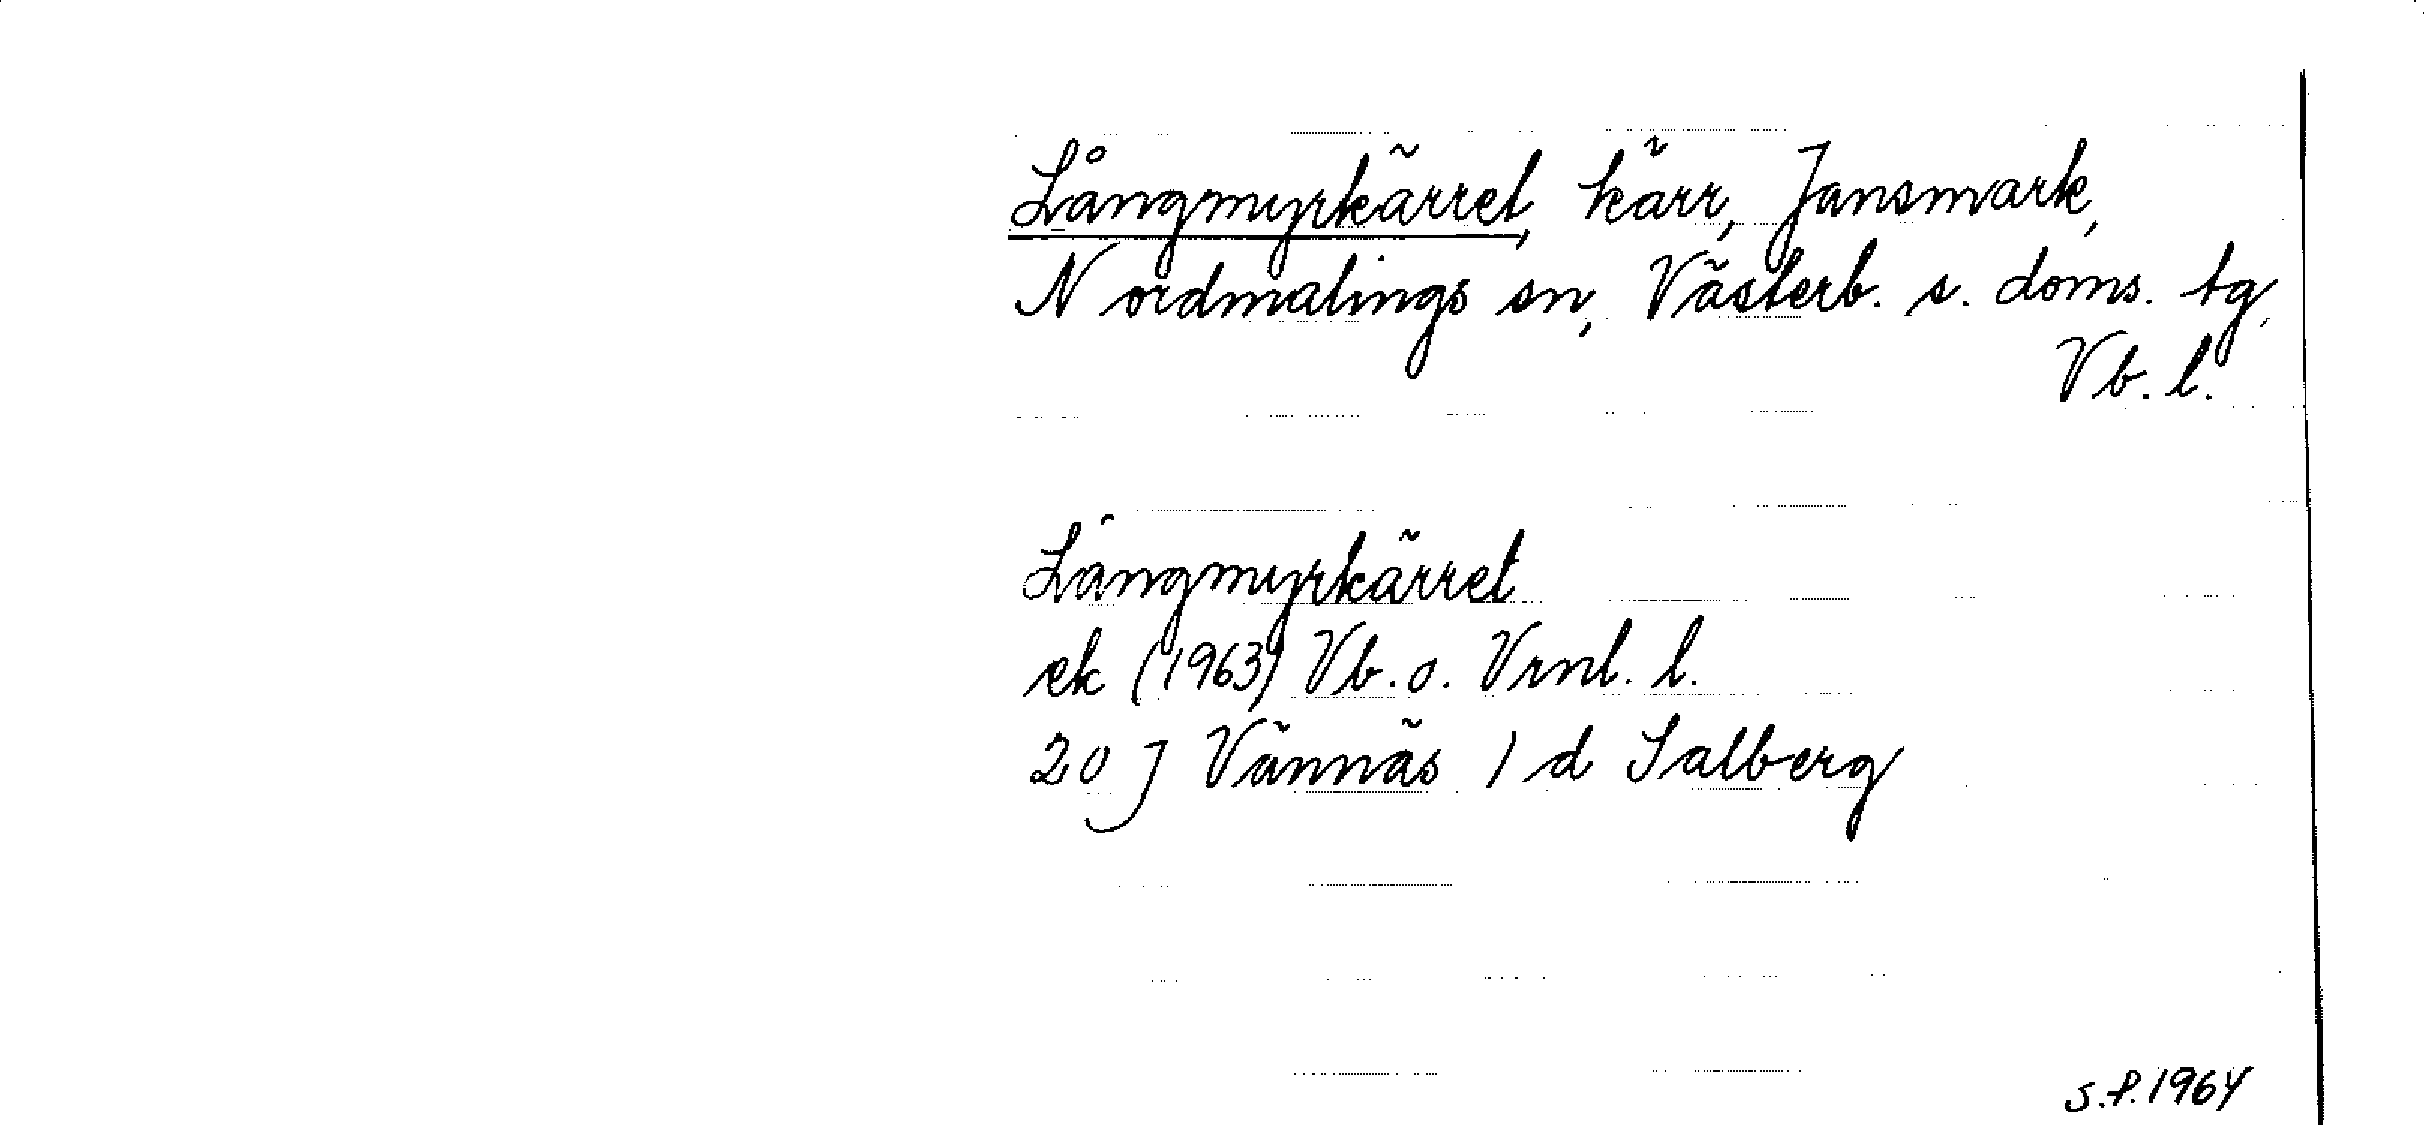 Långmyrkärret, kärr, Jansmark,
Nordmalings sn, Västerb. s. doms. tg,
Vb. l.
Långmyrkärret
ek (1963) Vb. o. Vrml. l.
20 J Vännäs 1 d Salberg
S.P. 1964